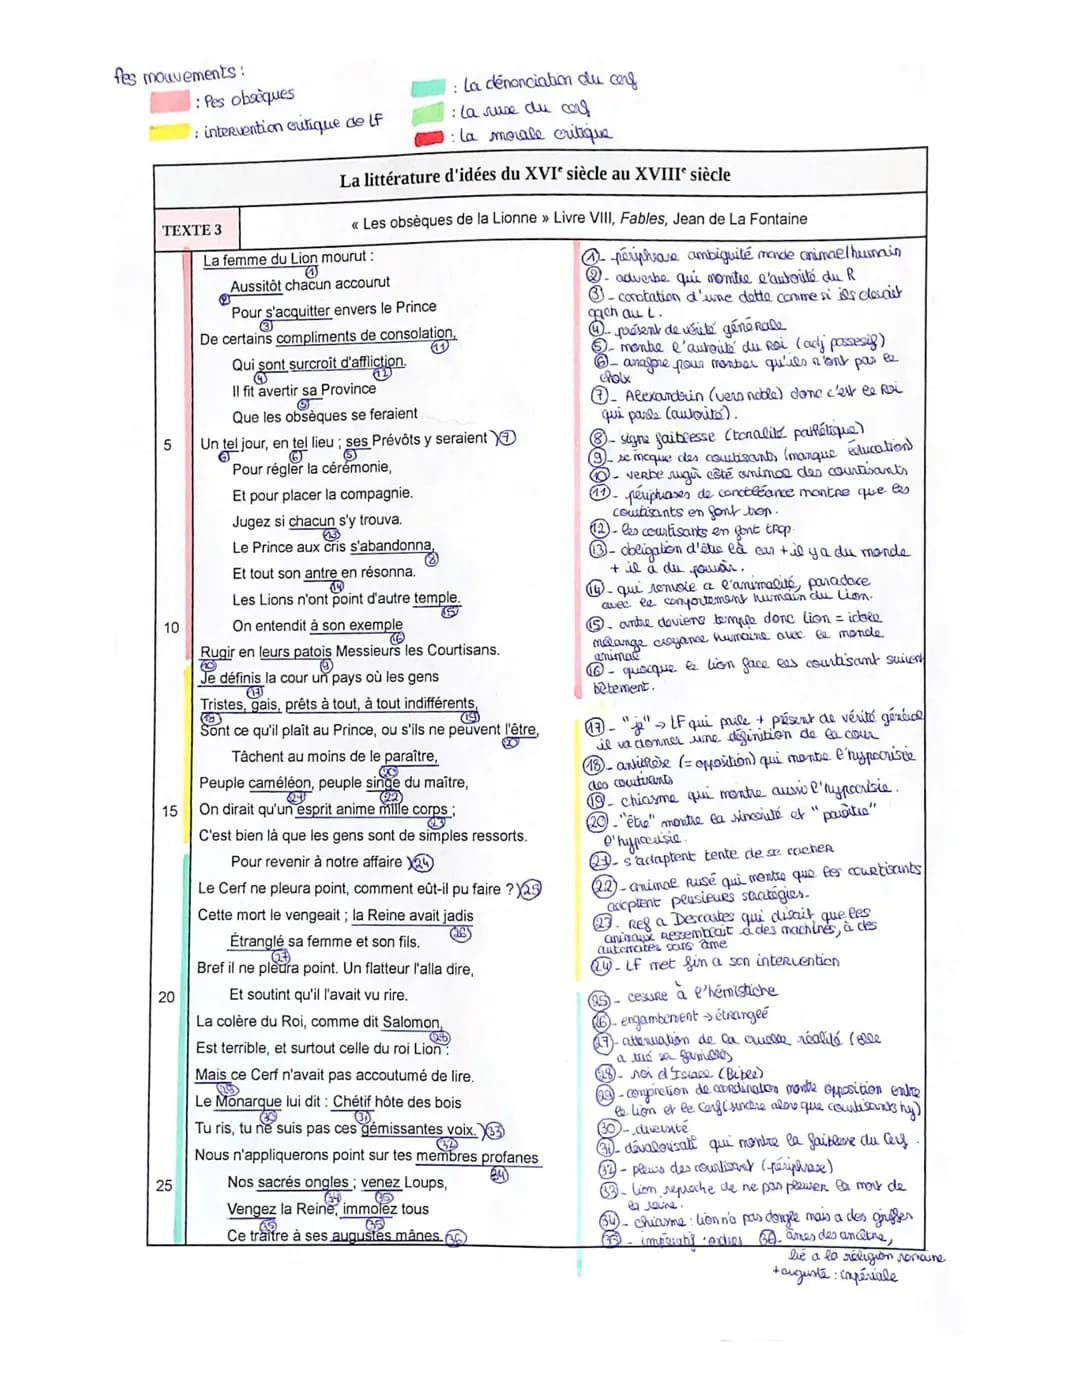 les mouvements :
: les obsèques
: intervention critique de LF
: La dénonciation du cerf
: la ruse du cerf
: la morale critique
La littérature d'idées du XVIe siècle au XVIIIe siècle
TEXTE 3
« Les obsèques de la Lionne » Livre VIII, Fables, Jean de La Fontaine
La femme du Lion mourut :
Aussitôt chacun accourut
Pour s'acquitter envers le Prince
De certains compliments de consolation,
Qui sont surcroît d'affliction.
Il fit avertir sa Province
Que les obsèques se feraient
5 Un tel jour, en tel lieu ; ses Prévôts y seraient
Pour régler la cérémonie,
Et pour placer la compagnie.
Jugez si chacun s'y trouva.
Le Prince aux cris s'abandonna,
Et tout son antre en résonna.
Les Lions n'ont point d'autre temple.
10 On entendit à son exemple
Rugir en leurs patois Messieurs les Courtisans.
Je définis la cour un pays où les gens
Tristes, gais, prêts à tout, à tout indifférents,
Sont ce qu'il plaît au Prince, ou s'ils ne peuvent l'être,
Tâchent au moins de le paraître,
Peuple caméléon, peuple singe du maître,
15 On dirait qu'un esprit anime mille corps ;
C'est bien là que les gens sont de simples ressorts.
Pour revenir à notre affaire
Le Cerf ne pleura point, comment eût-il pu faire ?
Cette mort le vengeait ; la Reine avait jadis
Étranglé sa femme et son fils.
Bref il ne pleura point. Un flatteur l'alla dire,
20 Et soutint qu'il l'avait vu rire.
La colère du Roi, comme dit Salomon,
Est terrible, et surtout celle du roi Lion :
Mais ce Cerf n'avait pas accoutumé de lire.
Le Monarque lui dit : Chétif hôte des bois
Tu ris, tu ne suis pas ces gémissantes voix.
Nous n'appliquerons point sur tes membres profanes
25 Nos sacrés ongles ; venez Loups,
Vengez la Reine, immolez tous
Ce traître à ses augustes mânes.
1 - périphrase ambiguité monde animal humain
2 - adverbe qui montre l'autorité du R
3 - conotation d'une dette comme si ils devait
qqch au L.
4 - présent de vérité générale
5 - montre l'autorité du Roi (adj possesif)
6 - anafore pour montrer qu'ils n'ont pas le
choix
7 - Alexandrin (vers noble) donc c'est le Roi
qui parle (autorité).
8 - signe faiblesse (tonalité pathétique)
9 - se moque des courtisants (manque éducation)
10 - verbe rugir côté animal des courtisants
11 - périphrases de condoléance montre que les
courtisants en font trop.
12 - les courtisants en font trop
13 - obligation d'être là car + il y a du monde
+ il a du pouvoir.
14 - qui renvoie a l'animalité, paradoxe
avec le comportement humain du Lion.
15 - antre deviens temple donc lion = idole
mélange croyance humaine avec le monde
animal
16 - quoique le lion face les courtisant suivent
bêtement.
17 - "je" → LF qui parle + présent de vérité générale
il va donner une définition de la cour
18 - antithèse (= opposition) qui montre l'hypocrisie
des courtisants
19 - chiasme qui montre aussi l'hypocrisie.
20 - "être" montre la sincérité et "paraître"
l'hypocrisie.
21 - s'adaptent tente de se cacher
22 - animal rusé qui montre que les courtisants
adoptent plusieurs stratégies.
23 - Ref a Descartes qui disait que les
animaux ressemblait à des machines, à des
automates sans âme
24 - LF met fin a son intervention
25 - cesure à l'hémistiche
26 - engambement → étranglé
27 - attenuation de la cruelle réalité (elle
a tué sa famille)
28 - roi d'Israel (Bible)
29 - conjonction de coordination montre opposition entre
le lion et le cerf (sincère alors que courtisants hy)
30 -
31 - dévalorisatif qui montre la faiblesse du Cerf.
32 - pleurs des courtisant (périphrase)
33 - Lion reproche de ne pas pleurer la mort de
la reine.
34 - chiasme : lion n'a pas d'ongle mais a des griffes
35 - impératif : ordres 36 - âmes des ancêtre,
lié a la réligion romaine
+ auguste : impériale